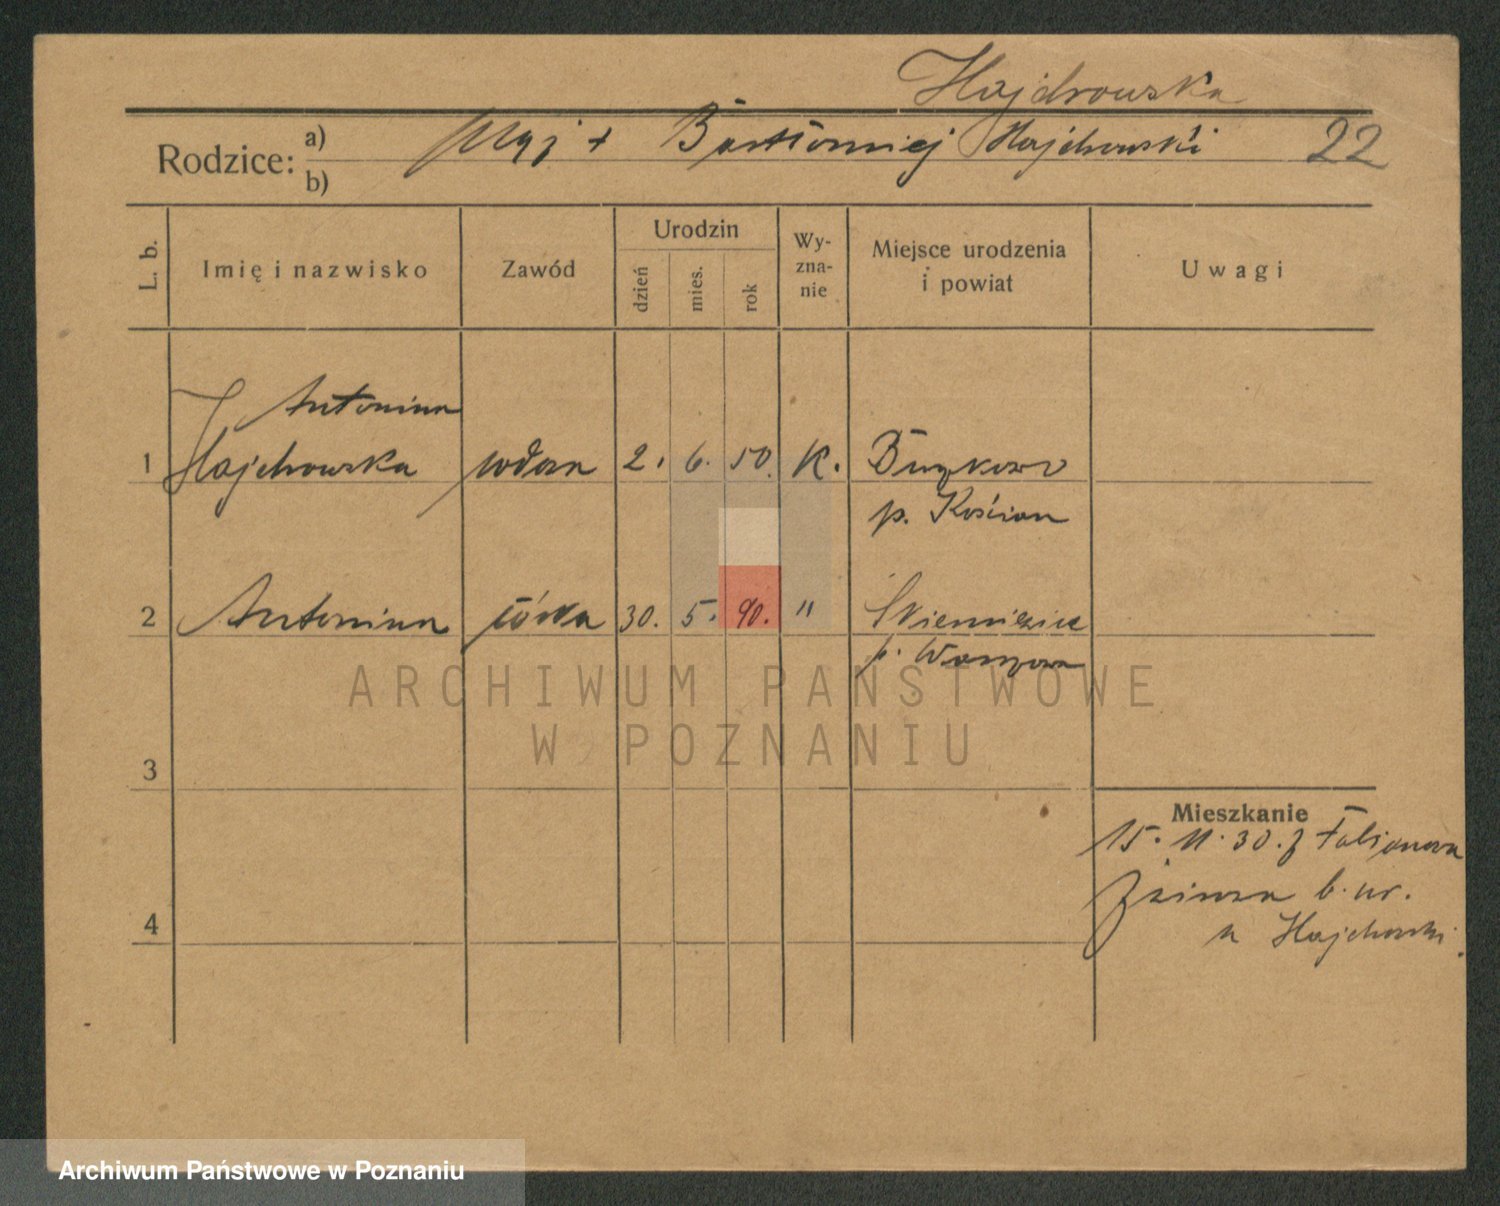 Hajchrowska
Rodzice: a) b) Mąż + Bartłomiej Hajchrowski 22
L. b. Imię i nazwisko Zawód Urodzin dzień mies. rok Wyznanie Miejsce urodzenia i powiat Uwagi
Antonina
1 Hajchrowska wdowa 2. 6. 50. K.
p. Kościan
2 Antonina córka 30. 5. 90. " Skierniewice
p. Warszawa
ARCHIWUM PAŃSTWOWE
W POZNANIU
3
Mieszkanie
15. 11. 30. z Fabianowa
b. nr.
4
u Hajchrowski
Archiwum Państwowe w Poznaniu